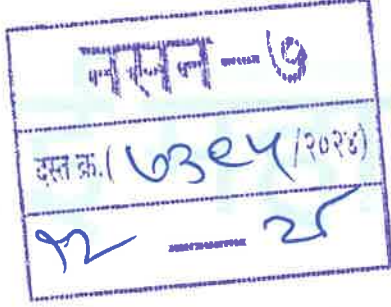 नसन - ७
दस्त क्र. (७३९५/२०२४)
१२ - २८